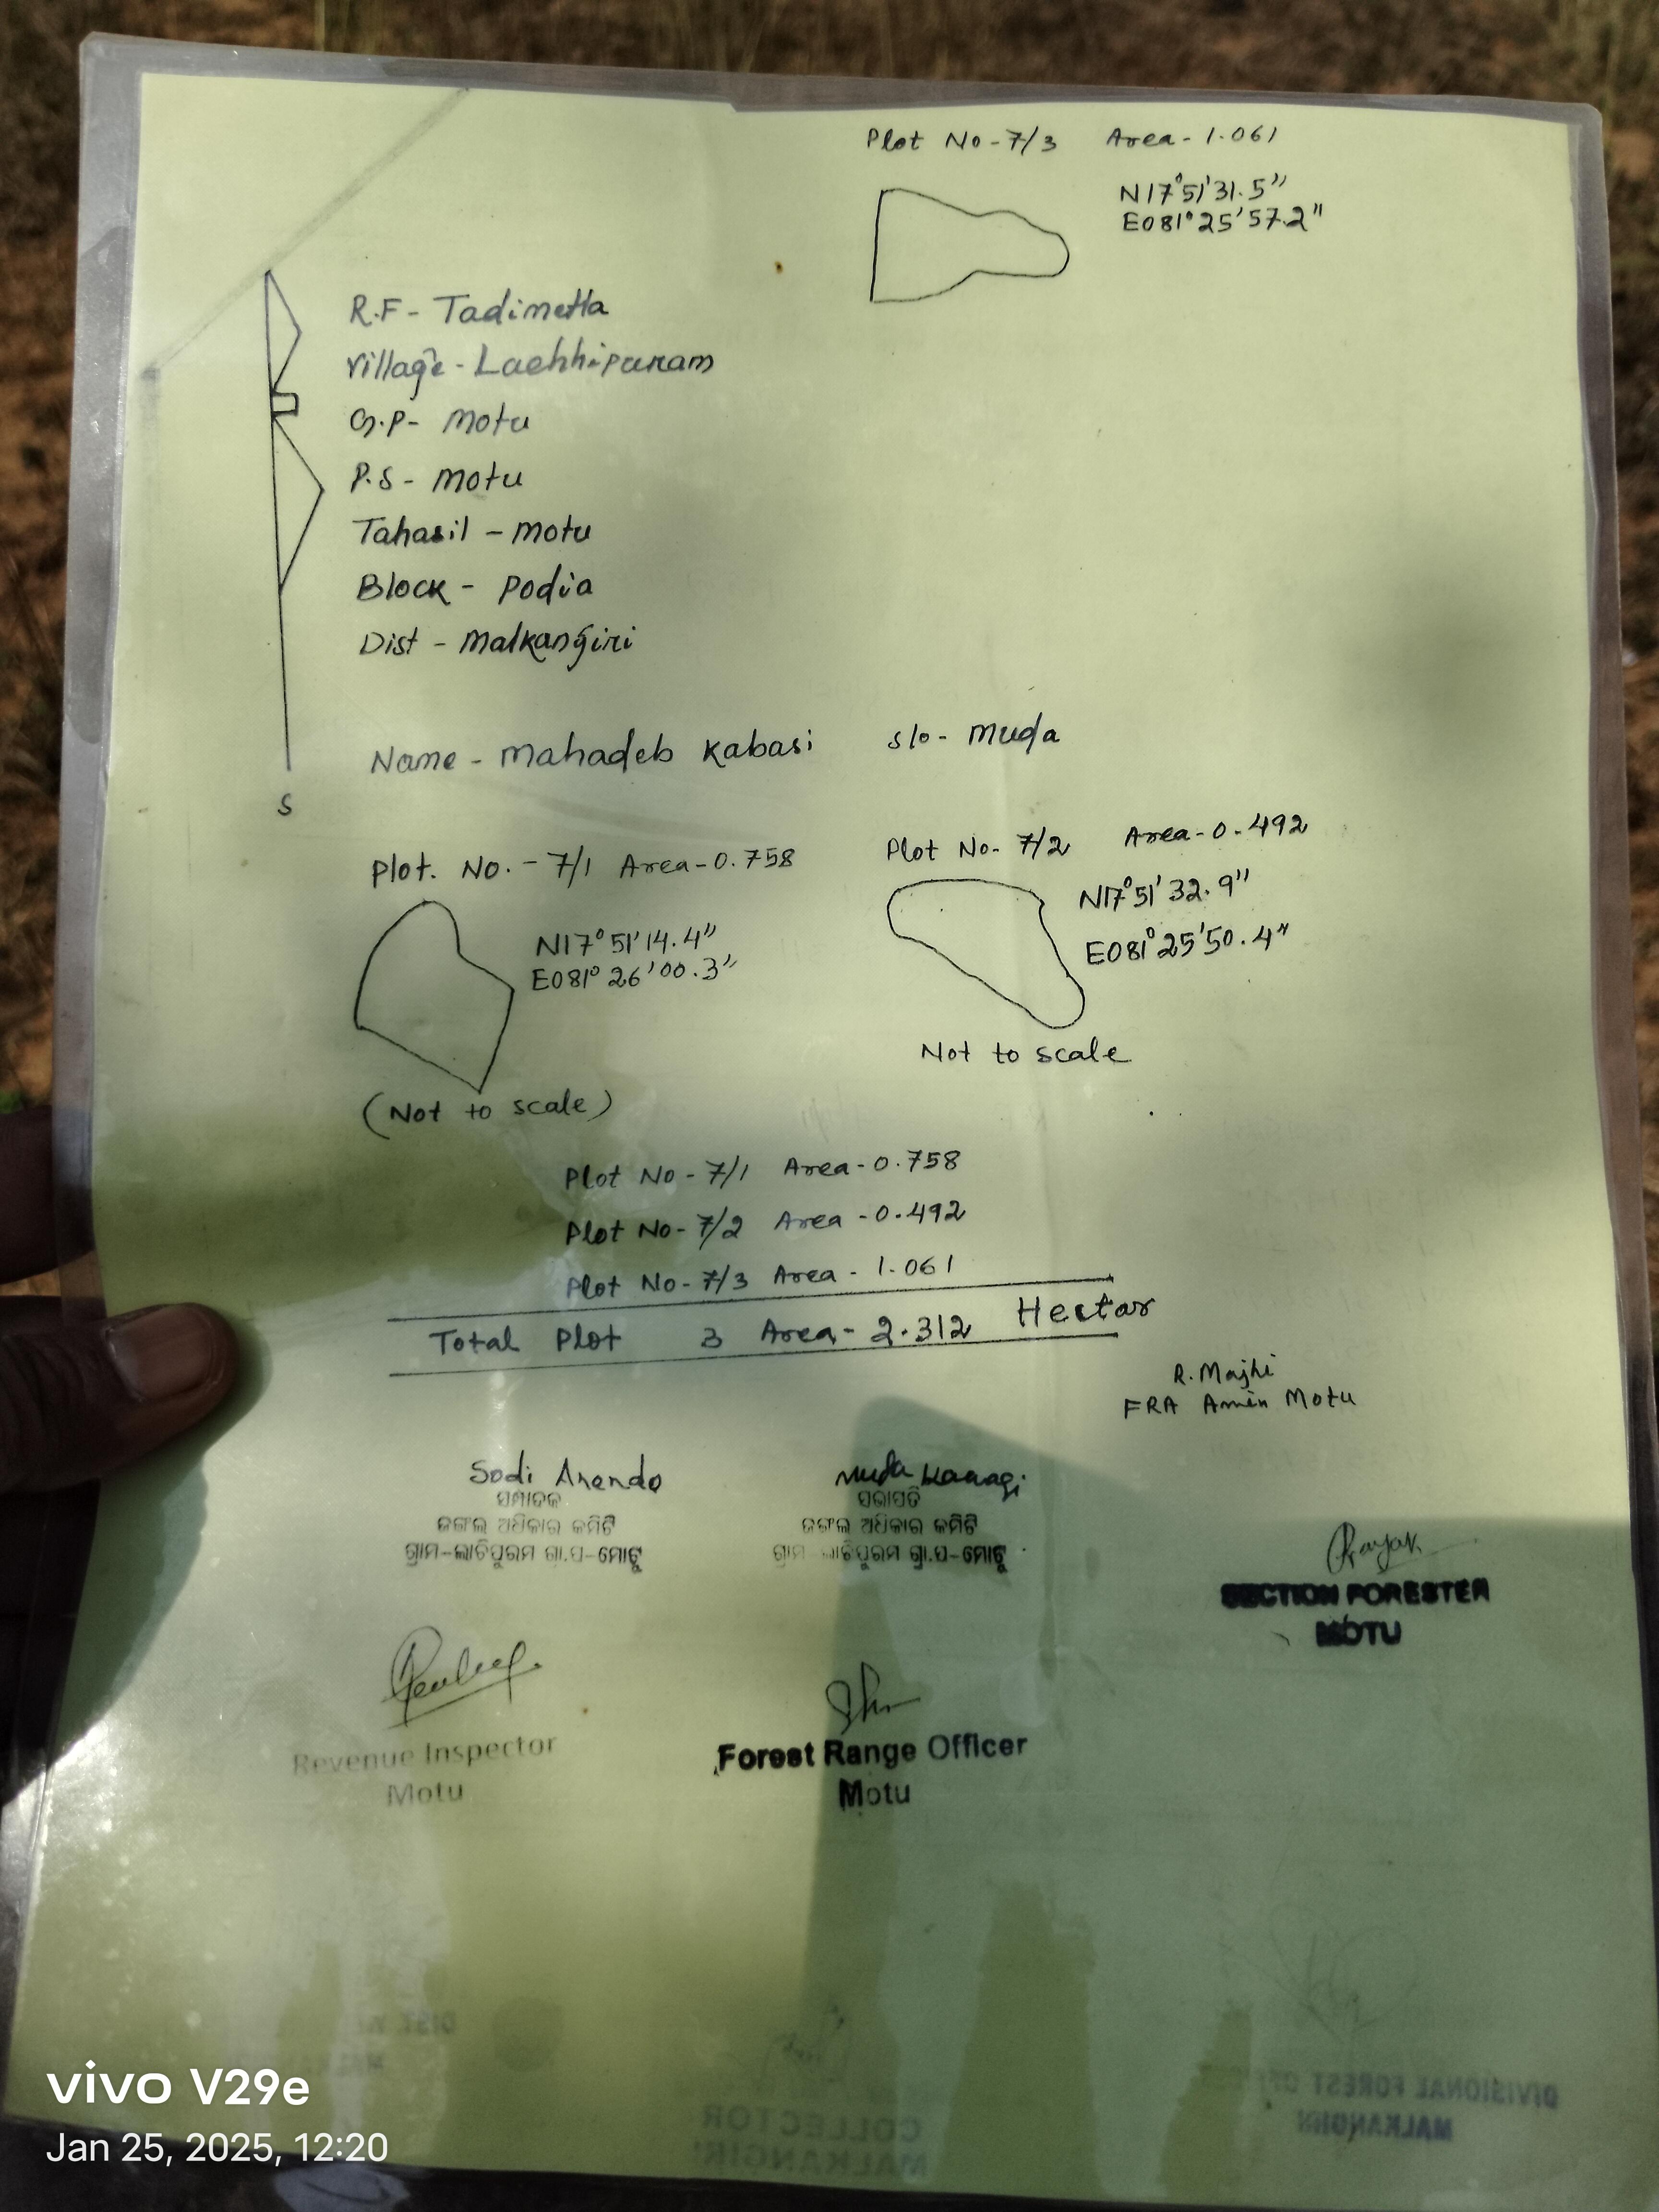 Plot No-7/3 Area-1.061
N17°51'31.5"
E081°25'57.2"
R.F- Tadimetla
Village-Lachhipuram
G.P- Motu
P.S- Motu
Tahasil - Motu
Block- Podia
Dist - Malkangiri
Name - Mahadeb Kabasi s/o- Muda
S
Plot. No.-7/1 Area-0.758
N17°51'14.4"
E081°26'00.3"
(Not to scale)
Plot No- 7/2 Area-0.492
N17°51'32.9"
E081°25'50.4"
Not to scale
Plot No-7/1 Area-0.758
Plot No-7/2 Area-0.492
Plot No-7/3 Area-1.061
Total Plot 3 Area-2.312 Hectar
R. Majhi
FRA Amin Motu
Sodi
ସମ୍ପାଦକ
ଜଙ୍ଗଲ ଅଧିକାର କମିଟି
ଗ୍ରାମ-ଲାଚିପୁରମ ଗ୍ରା.ପ-ମୋଟୁ
Muda
ସଭାପତି
ଜଙ୍ଗଲ ଅଧିକାର କମିଟି
ଗ୍ରାମ ଲାଚିପୁରମ ଗ୍ରା.ପ-ମୋଟୁ
SECTION FORESTER
MOTU
Revenue Inspector
Motu
Forest Range Officer
Motu
DIST. 
MALKANGIRI
COLLECTOR
MALKANGIRI
DIVISIONAL FOREST
MALKANGIRI
vivo V29e
Jan 25, 2025, 12:20